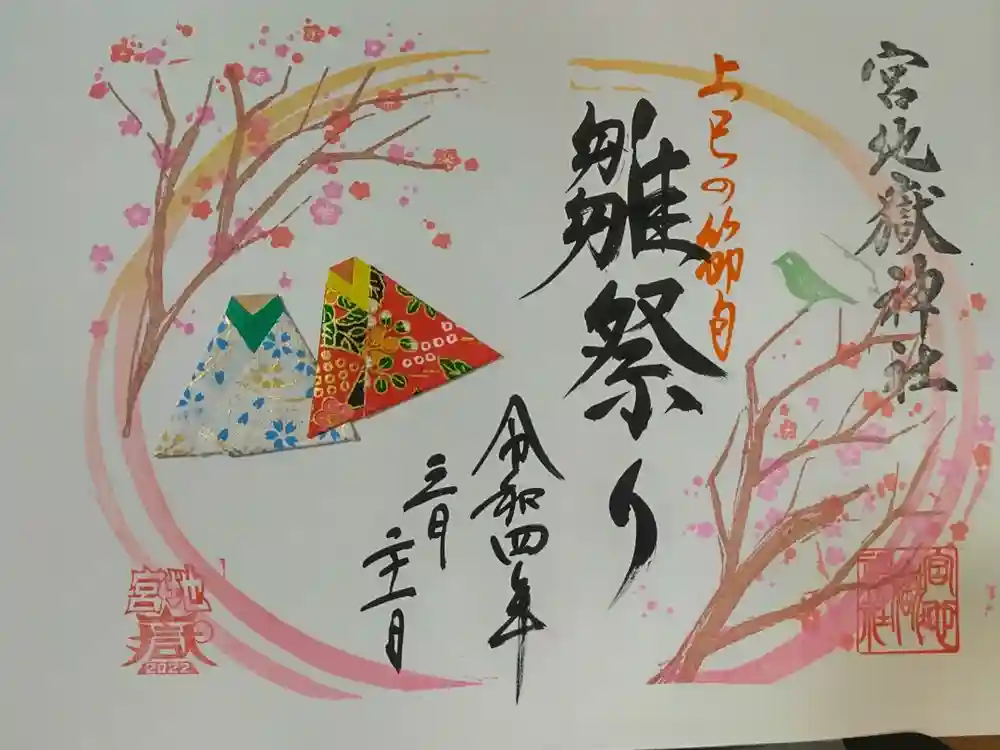 宮地嶽神社
上巳の節句
雛祭り
令和四年
三月
二十一日
宮地嶽
2022